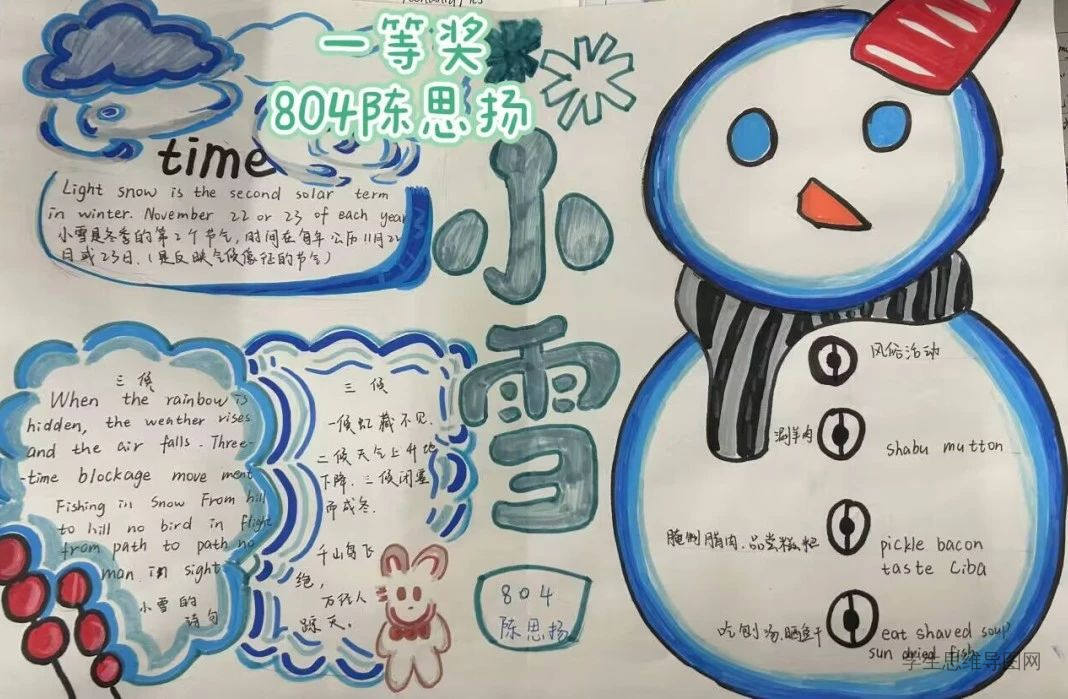 一等奖
804陈思扬
time
Light snow is the second solar term
in winter. November 22 or 23 of each year
小雪是冬季的第2个节气,时间在每年公历11月22
日或23日.(是反映气候像征的节气)
小雪
三候
When the rainbow is
hidden, the weather rises
and the air falls. Three-
-time blockage move ment
Fishing in Snow From hill
to hill no bird in flight
from path to path no
man in sight
小雪的
诗句
三候
一候虹藏不见.
二候天气上升地
下降.三候闭塞
而成冬.
千山鸟飞
绝,
万径人
踪灭。
804
陈思扬
风俗活动
涮羊肉
shabu mutton
腌制腊肉.品尝糍粑
pickle bacon
taste Ciba
吃刨汤.晒鱼干
eat shaved soup
sun dried fish
学生思维导图网